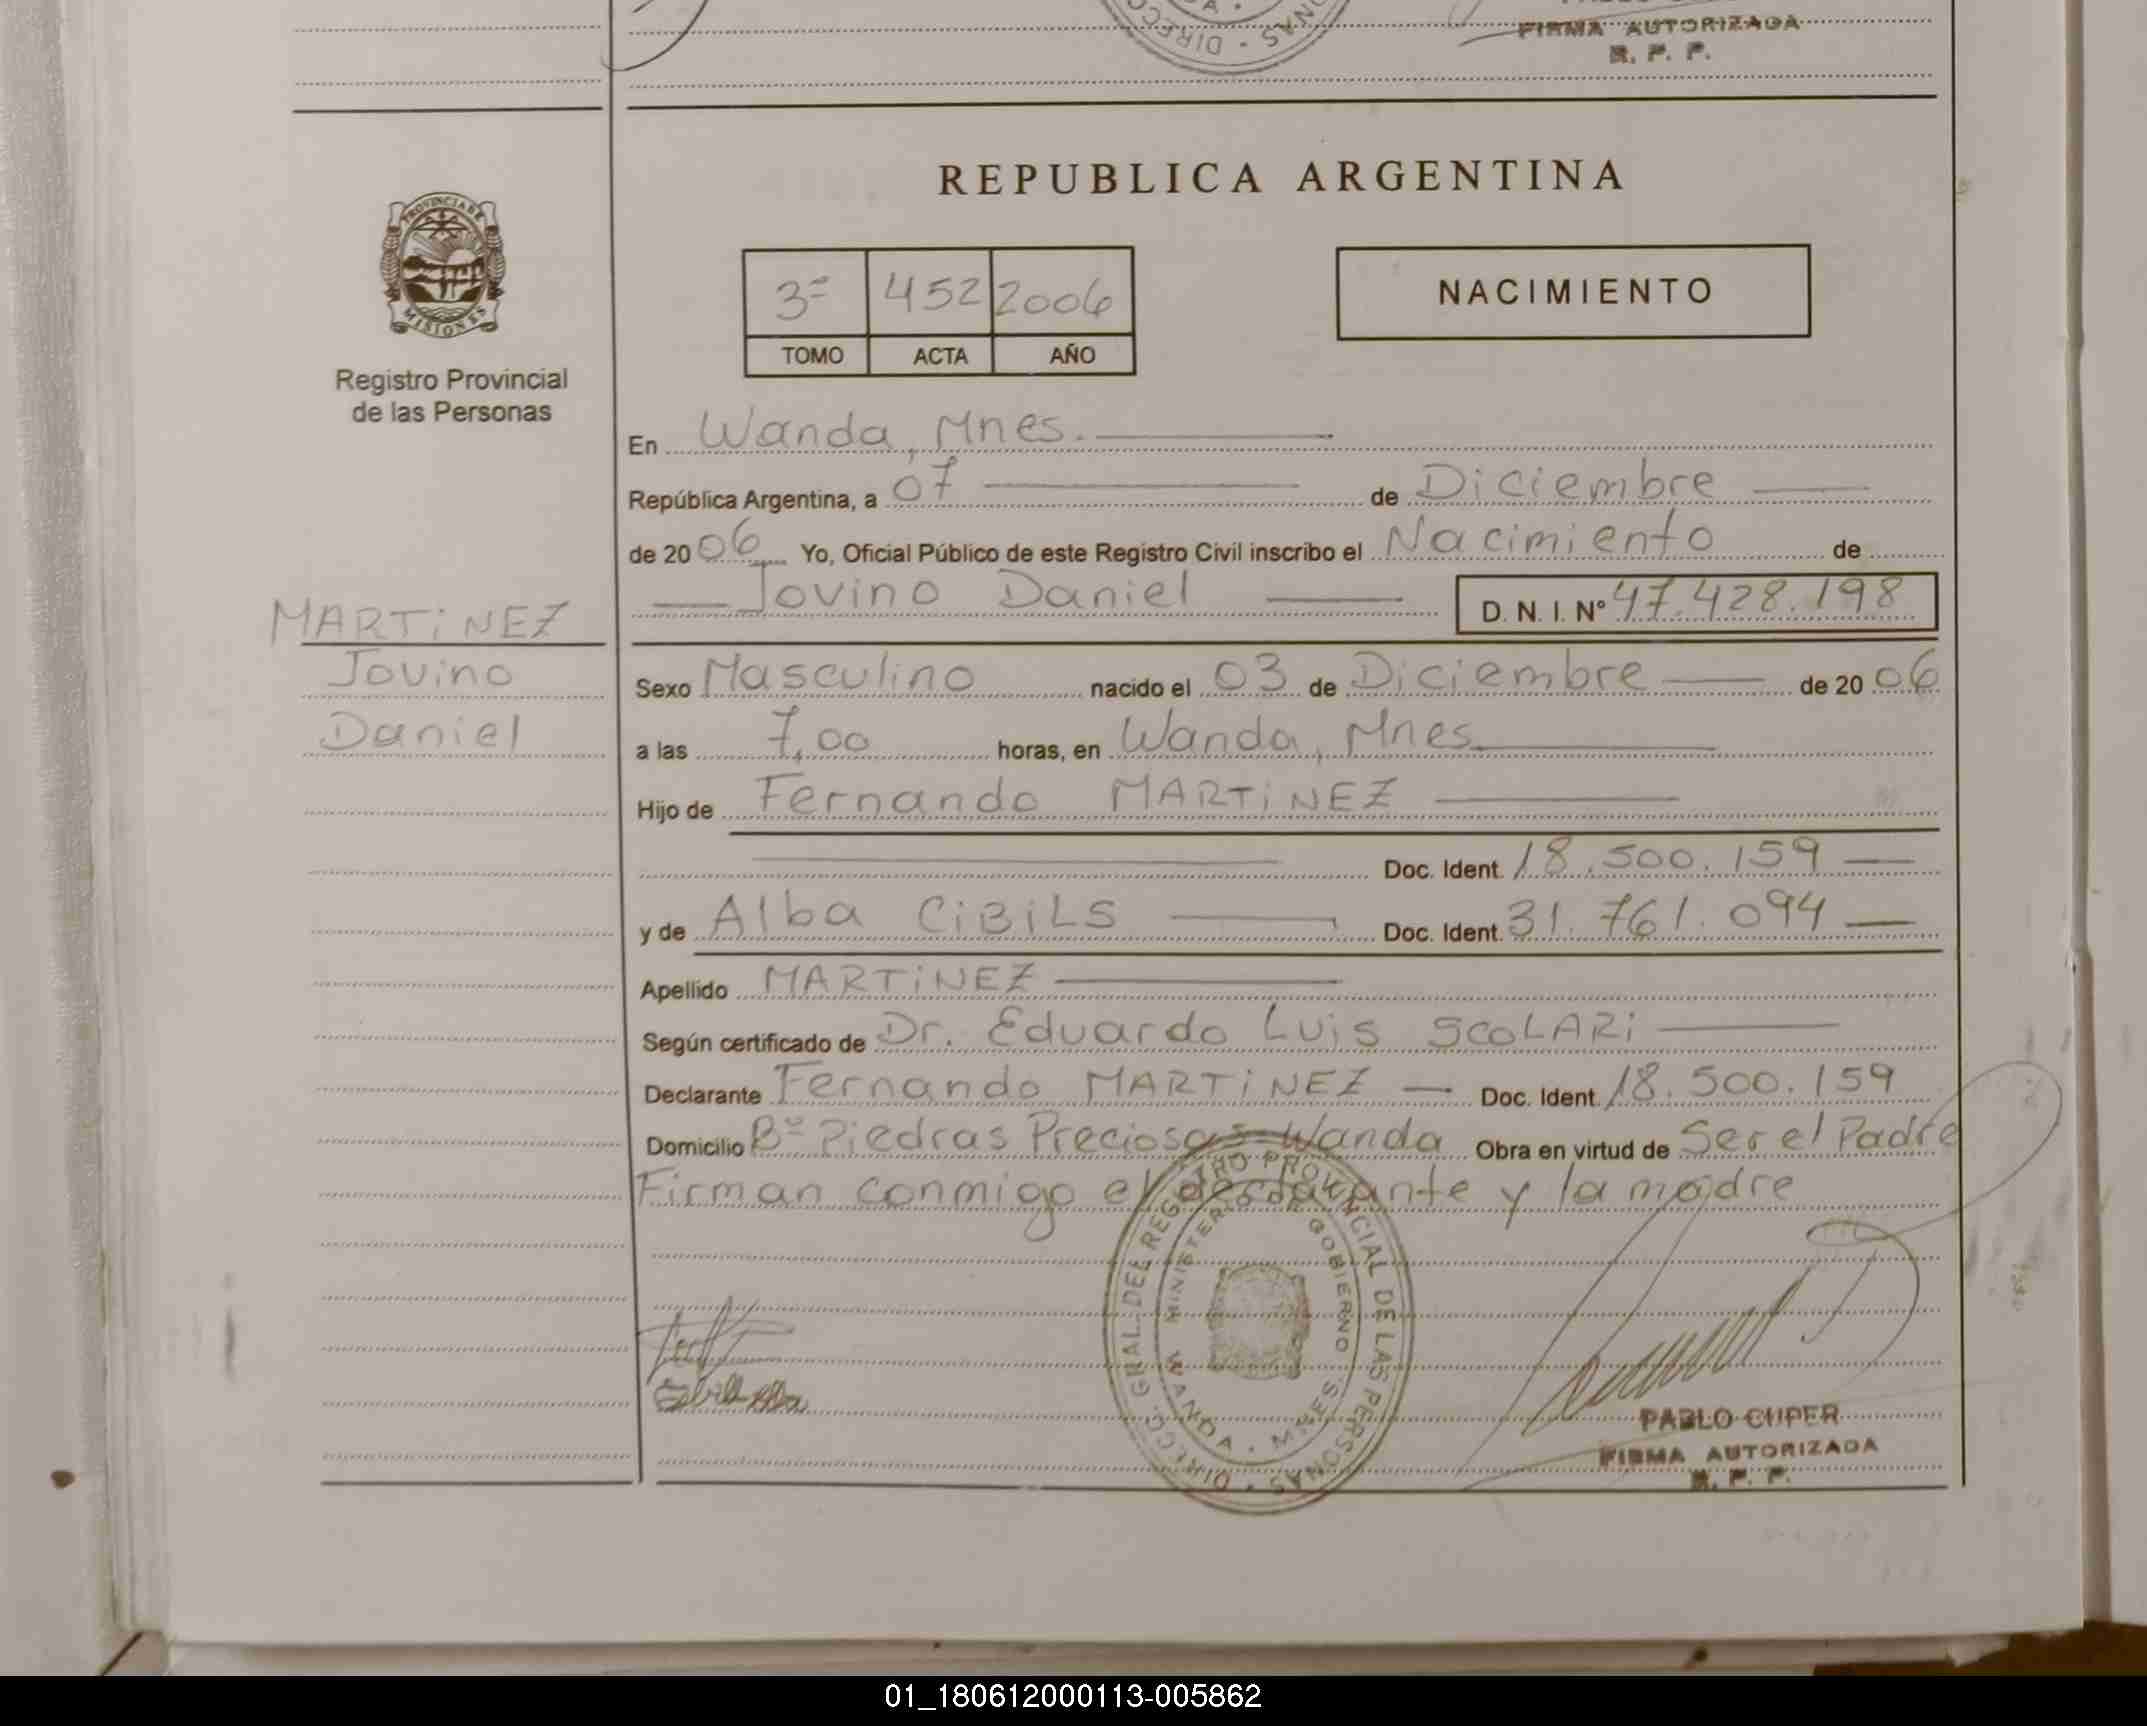 FIRMA AUTORIZADA
R. P. P.
DIRECC
NAS
PROVINCIA DE
MISIONES
Registro Provincial
de las Personas
REPUBLICA ARGENTINA
3º 452 2006
TOMO ACTA AÑO
NACIMIENTO
En Wanda, Mnes.
República Argentina, a 07 de Diciembre
de 2006 Yo, Oficial Público de este Registro Civil inscribo el Nacimiento de
Jovino Daniel D. N. I. Nº 47.428.198
MARTiNEZ
Jovino
Daniel
Sexo Masculino nacido el 03 de Diciembre de 2006
a las 7,00 horas, en Wanda, Mnes.
Hijo de Fernando MARTiNEZ
Doc. Ident. 18.500.159
y de Alba CiBiLS Doc. Ident. 31.761.094
Apellido MARTiNEZ
Según certificado de Dr. Eduardo Luis SCOLARi
Declarante Fernando MARTiNEZ Doc. Ident. 18.500.159
Domicilio Bº Piedras Preciosas - Wanda Obra en virtud de Ser el Padre
Firman conmigo el declarante y la madre
DIRECC. GRAL. DEL REGISTRO PROVINCIAL DE LAS PERSONAS
MINISTERIO DE GOBIERNO
WANDA - MNES.
PABLO CUPER
FIRMA AUTORIZADA
R. P. P.
01_180612000113-005862